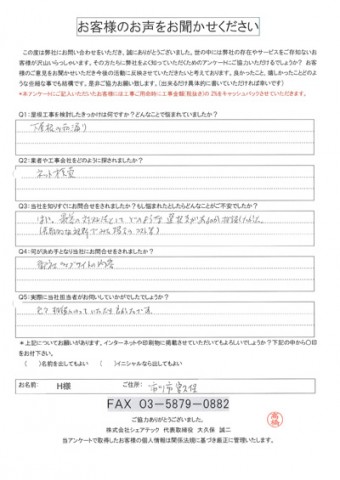 お客様のお声をお聞かせください
この度は弊社にお問い合わせをいただき、誠にありがとうございました。世の中には弊社の存在やサービスをご存知ないお
客様が沢山いらっしゃいます。その方たちに弊社をよく知っていただくためのアンケートにご協力いただけるでしょうか?お
客様のご意見をお聞かせいただき今後の活動に反映させていただきたいと考えております。良かったこと、嬉しかったことどのよ
うな些細な事でも結構です。是非ご協力お願い致します。(出来るだけ具体的にご記入いただければ幸いです)
*本アンケートにご記入いただいたお客様には工事ご用命時に工事金額(税抜き)の2%をキャッシュバックさせていただきます。
Q1:屋根工事を検討したきっかけは何ですか?どんなことで悩まれていましたか?
下屋根の雨漏り
Q2:業者や工事会社をどのように探されましたか?
ネット検索
Q3:当社を知りすぐにお問合せをされましたか?もし悩まれたとしたらどんなことがご不安でしたか?
Q4:何が決め手となり当社にお問合せをされましたか?
御社ウェブサイトの内容
Q5:実際に当社担当者がお伺いしていかがでしたでしょうか?
*上記についてお願いがあります。インターネットや印刷物に掲載させていただいてもよろしいでしょうか?下記の中から〇印
をお付下さい。
( )名前を出してもよい ( )イニシャルなら出してもよい
お名前: H様 ご住所: 市川市
FAX 03-5879-0882
ご協力ありがとうございました。
株式会社シェアテック 代表取締役 大久保 誠二
当アンケートで取得したお客様の個人情報は関係法規に基づき厳正に管理いたします。